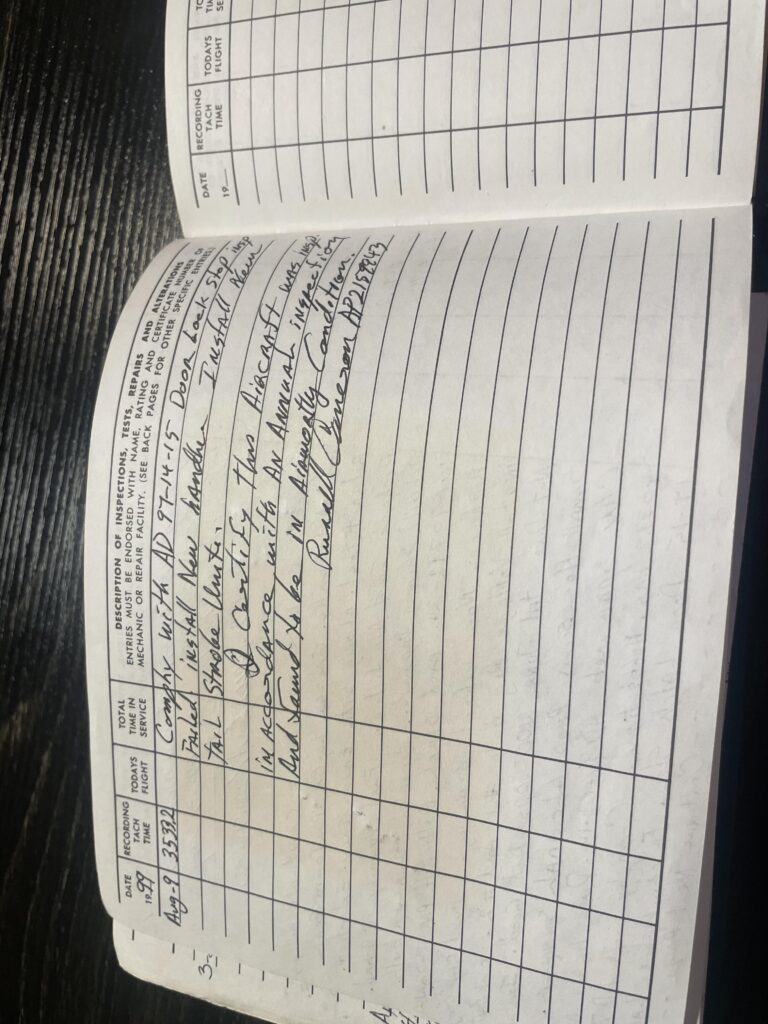 DATE
19 99
RECORDING
TACH
TIME
TODAYS
FLIGHT
TOTAL
TIME IN
SERVICE
DESCRIPTION OF INSPECTIONS, TESTS, REPAIRS AND ALTERATIONS
ENTRIES MUST BE ENDORSED WITH NAME, RATING AND CERTIFICATE NUMBER OF
MECHANIC OR REPAIR FACILITY. (SEE BACK PAGES FOR OTHER SPECIFIC ENTRIES.)
Aug-9 Comply with AD 97-14-15 Door Lock Stop insp
Failed install New handle. Install New
tail strobe Unit.
I Certify this Aircraft was insp.
in accordance with An Annual inspection
And found to be in Airworthy Condition.
Russell AP2159843
DATE
19
RECORDING
TACH
TIME
TODAYS
FLIGHT